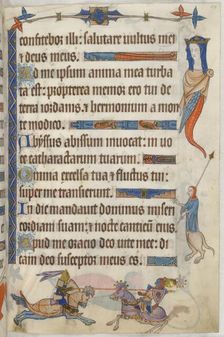 confitebor illi: salutare uultus mei
& deus meus.
Ad me ipsum anima mea turba
ta est: propterea memor ero tui de
terra iordanis & hermonium a mon
te modico.
Abissus abissum inuocat: in uo
ce catharactarum tuarum.
Omnia excelsa tua & fluctus tui:
super me transierunt.
In die mandauit dominus miseri
cordiam suam: & nocte canticum eius.
Apud me oracio deo uite mee: di
cam deo susceptor meus es.